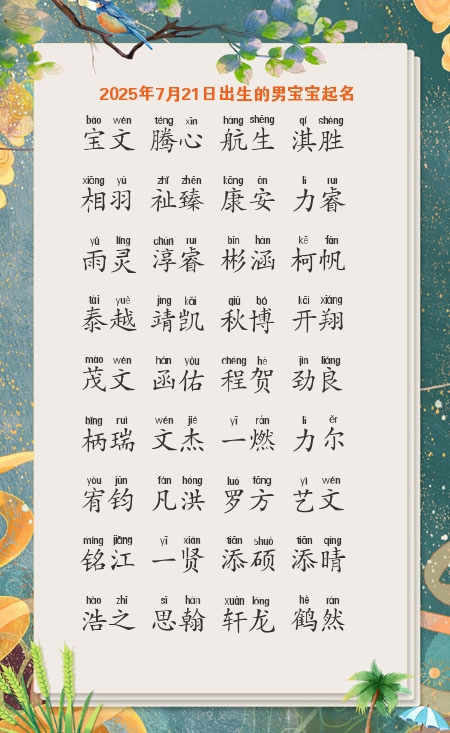 2025年7月21日出生的男宝宝起名
bǎo wén téng xīn háng shēng qí shèng
宝文 腾心 航生 淇胜
xiāng yǔ zhǐ zhēn kāng ān lì ruì
相羽 祉臻 康安 力睿
yǔ líng chún ruì bīn hán kē fān
雨灵 淳睿 彬涵 柯帆
tài yuè jìng kǎi qiū bó kāi xiáng
泰越 靖凯 秋博 开翔
mào wén hán yòu chéng hè jìn liáng
茂文 函佑 程贺 劲良
bǐng ruì wén jié yī rán lì ěr
柄瑞 文杰 一燃 力尔
yòu jūn fán hóng luó fāng yì wén
宥钧 凡洪 罗方 艺文
míng jiāng yī xián tiān shuò tiān qíng
铭江 一贤 添硕 添晴
hào zhī sī hàn xuān lóng hè rán
浩之 思翰 轩龙 鹤然